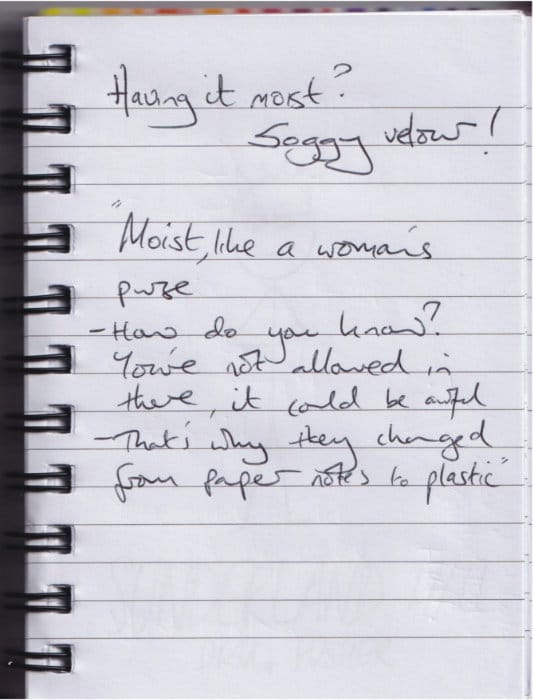 Having it moist?
Soggy velour!
"Moist, like a woman's
purse
- How do you know?
You're not allowed in
there, it could be awful
- That's why they changed
from paper notes to plastic"